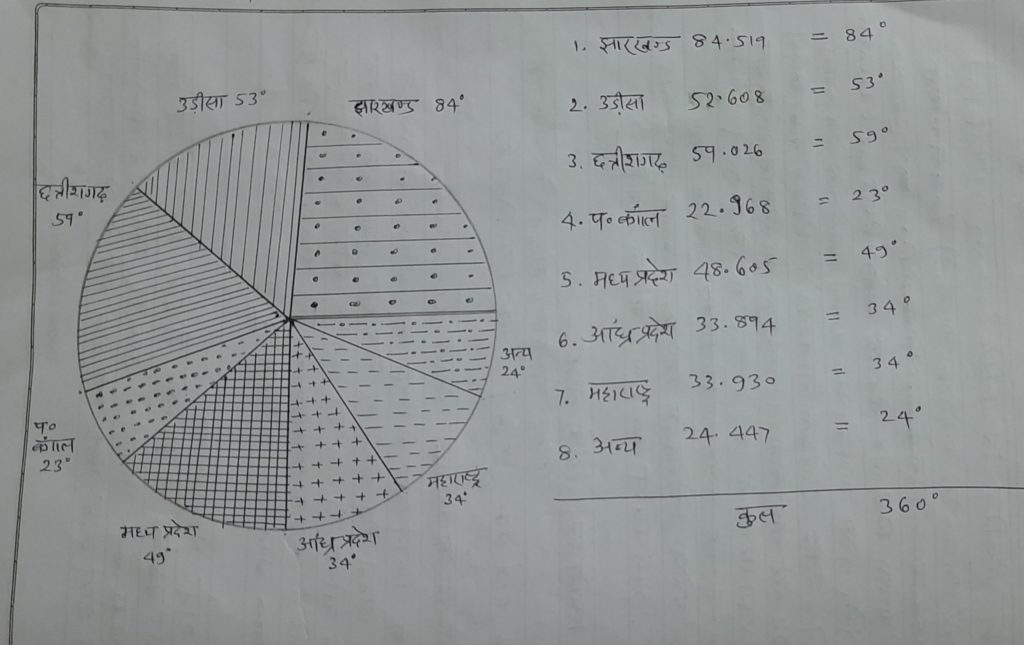 उड़ीसा 53°
झारखण्ड 84°
छत्तीशगढ़
59°
प०
बंगाल
23°
मध्य प्रदेश
49°
आंध्र प्रदेश
34°
महाराष्ट्र
34°
अन्य
24°
1. झारखण्ड 84.519 = 84°
2. उड़ीसा 52.608 = 53°
3. छत्तीशगढ़ 59.026 = 59°
4. प० बंगाल 22.968 = 23°
5. मध्य प्रदेश 48.605 = 49°
6. आंध्र प्रदेश 33.894 = 34°
7. महाराष्ट्र 33.930 = 34°
8. अन्य 24.447 = 24°
कुल 360°